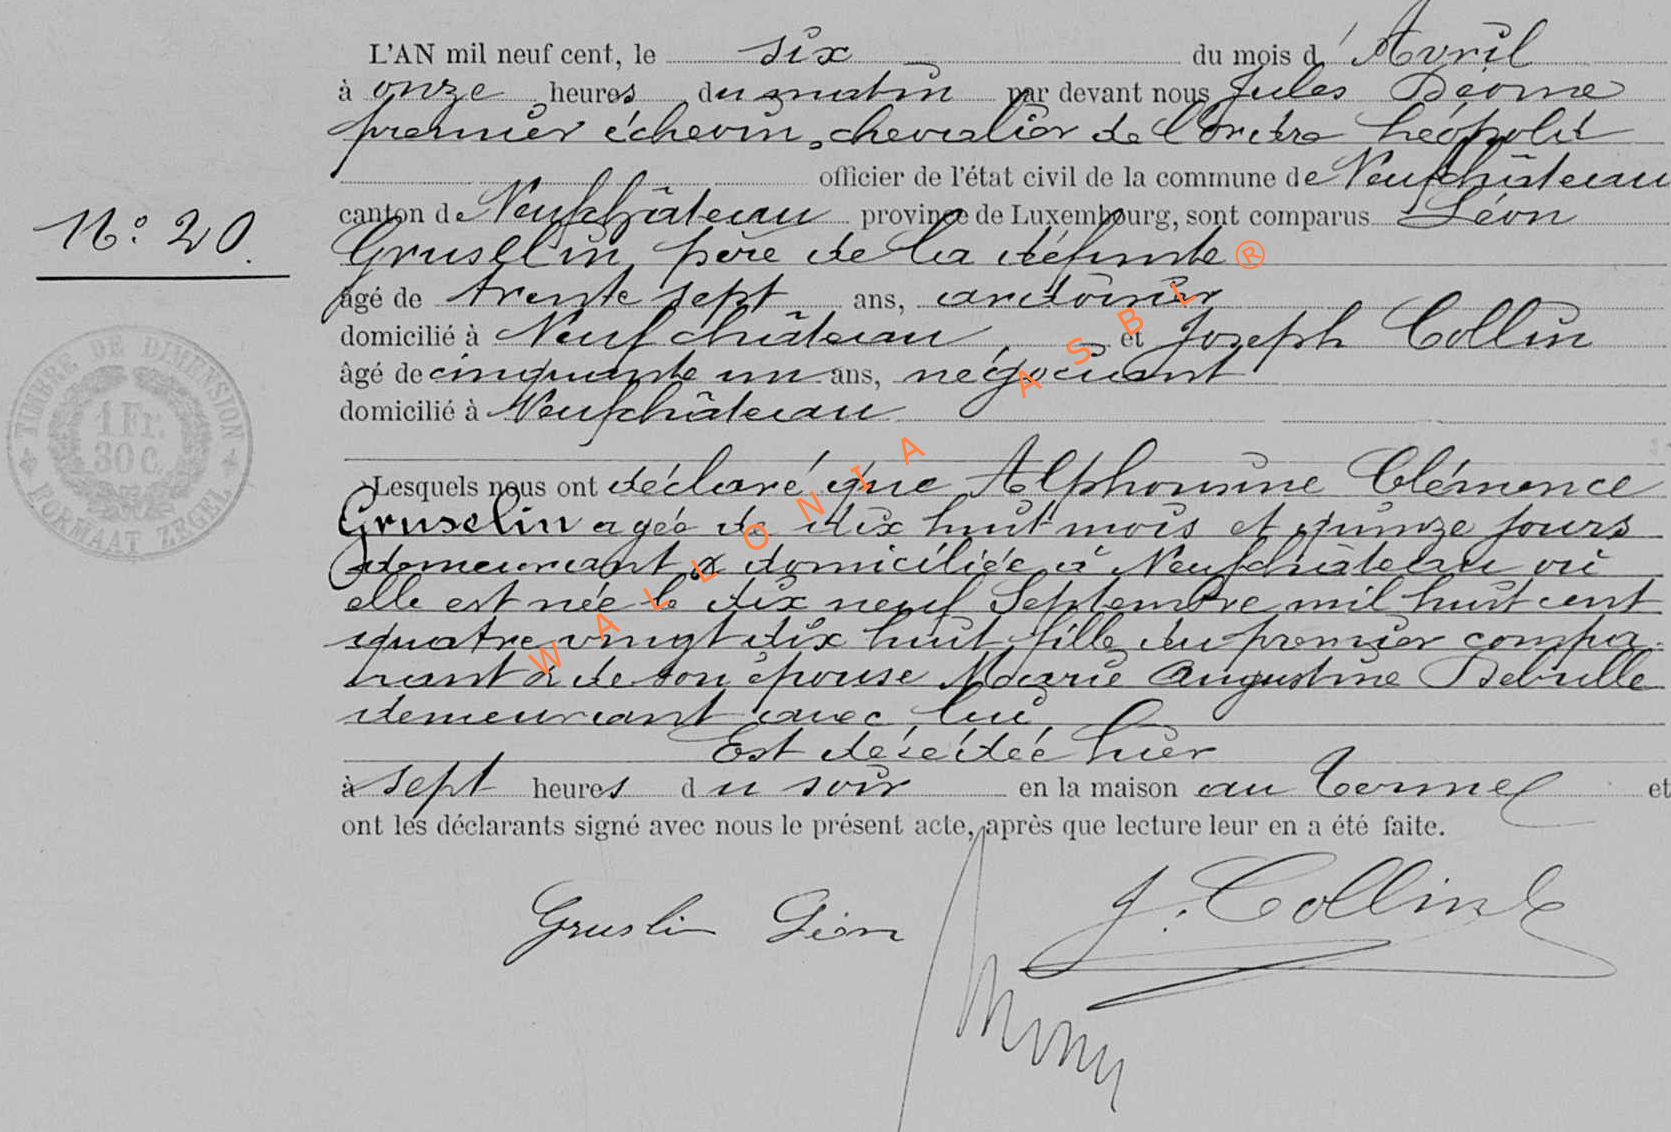 L'AN mil neuf cent, le six du mois d'Avril
à onze heures du matin par devant nous Jules
premier échevin, chevalier de l'ordre Léopold
officier de l'état civil de la commune de Neufchâteau
N° 20. canton de Neufchâteau province de Luxembourg, sont comparus Léon
Gruselin, père de la défunte ®
âgé de trente sept ans, ardoisier
domicilié à Neufchâteau, et Joseph Collin
âgé de cinquante un ans, négociant
domicilié à Neufchâteau
TIMBRE DE DIMENSION
1 Fr.
30 C.
FORMAAT ZEGEL
Lesquels nous ont déclaré que Alphonsine Clémence
Gruselin agée de dix huit mois et quinze jours
demeurant & domiciliée à Neufchâteau où
elle est née le dix neuf Septembre mil huit cent
quatre vingt dix huit, fille du premier compa-
rant & de son épouse Marie Augustine Debulle
demeurant avec lui
Est décédée hier
à sept heures du soir en la maison au Terme et
ont les déclarants signé avec nous le présent acte, après que lecture leur en a été faite.
Gruslin Léon J. Collin
WALLONIA ASBL